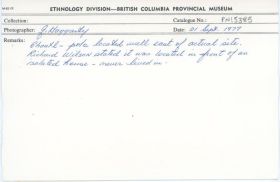 ETHNOLOGY DIVISION—BRITISH COLUMBIA PROVINCIAL MUSEUM
Collection:
Catalogue No.: PN15385
Photographer:
Date: 21 Sept. 1977
Remarks: - pole located well east of actual site.
Richard Wilson stated it was located in front of an
isolated house - never lived in.